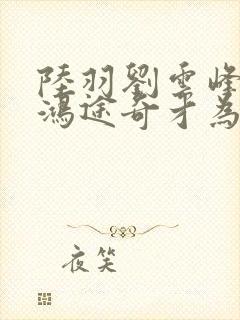 陸羽劉雲峰
鴻途奇才為
夜笑